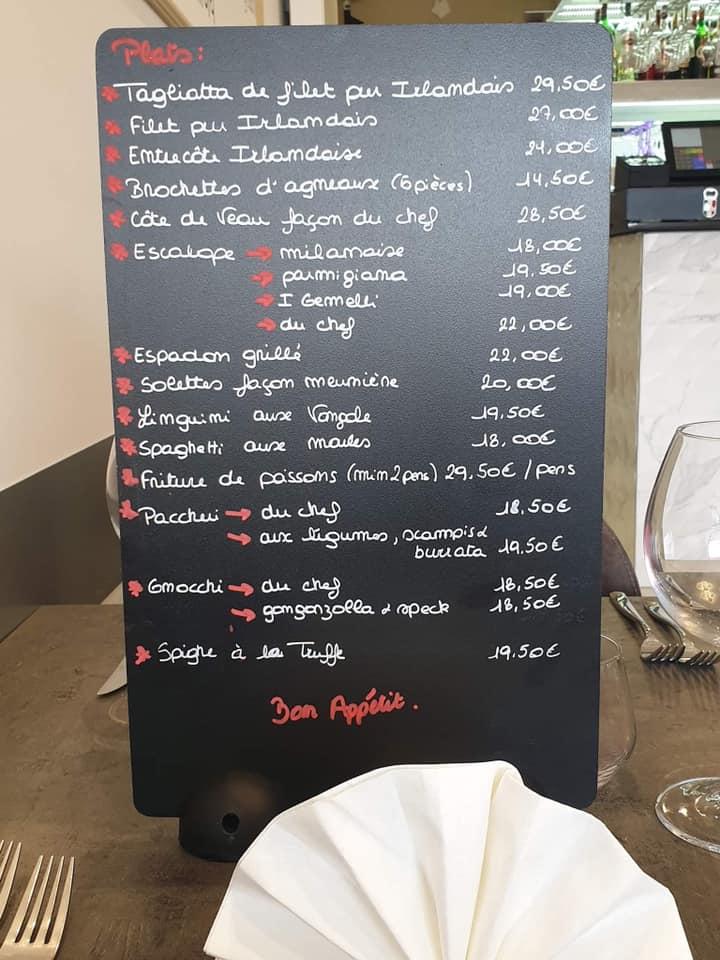 Plats :
Tagliatta de filet pur Irlandais 29,50€
Filet pur Irlandais 27,00€
Entrecôte Irlandaise 24,00€
Brochettes d'agneaux (6 pièces) 14,50€
Côte de Veau façon du chef 28,50€
Escalope → milanaise 18,00€
→ parmigiana 19.50€
→ I Gemelli 19,00€
→ du chef 22,00€
Espadon grillé 22,00€
Solettes façon meunière 20,00€
Linguini aux Vongole 19.50€
Spaghetti aux moules 18.00€
Friture de poissons (min 2 pers) 29.50€ / pers
Paccheri → du chef 18,50€
→ aux légumes, scampis &
burrata 19.50€
Gnocchi → du chef 18,50€
→ gorgonzolla & speck 18,50€
à la Truffe 19.50€
Bon Appétit.